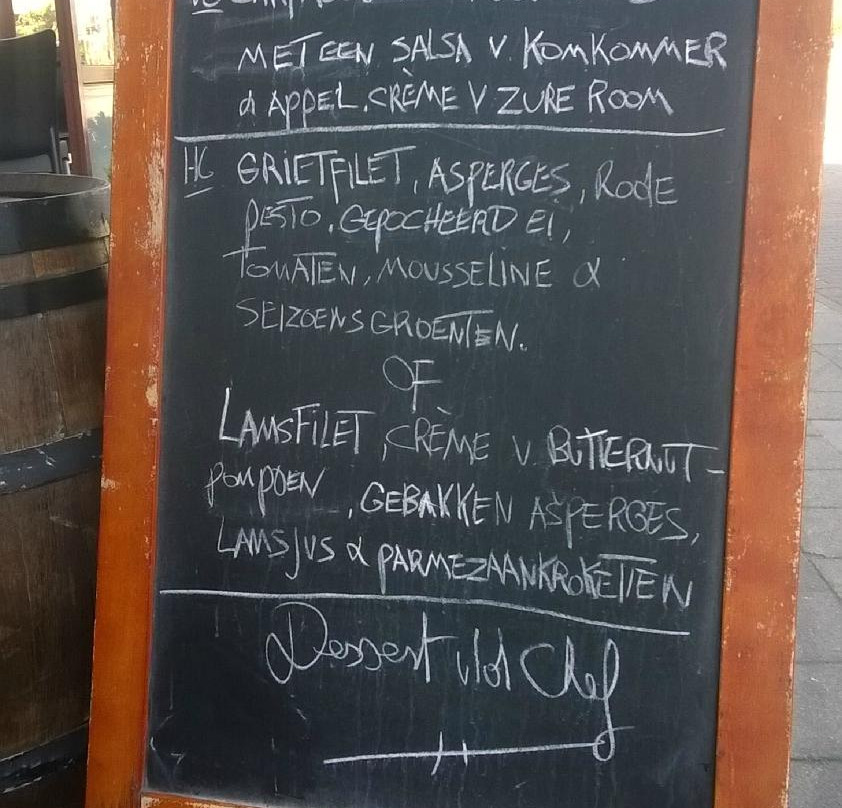 MET EEN SALSA V KOMKOMMER
& APPEL. CRÈME V ZURE ROOM
HG GRIETFILET, ASPERGES, RODE
PESTO, GEPOCHEERD EI,
TOMATEN, MOUSSELINE &
SEIZOENSGROENTEN.
OF
LAMSFILET, CRÈME V BUTTERNUT-
POMPOEN, GEBAKKEN ASPERGES,
LAMSJUS & PARMEZAANKROKETTEN
Dessert v/d Chef